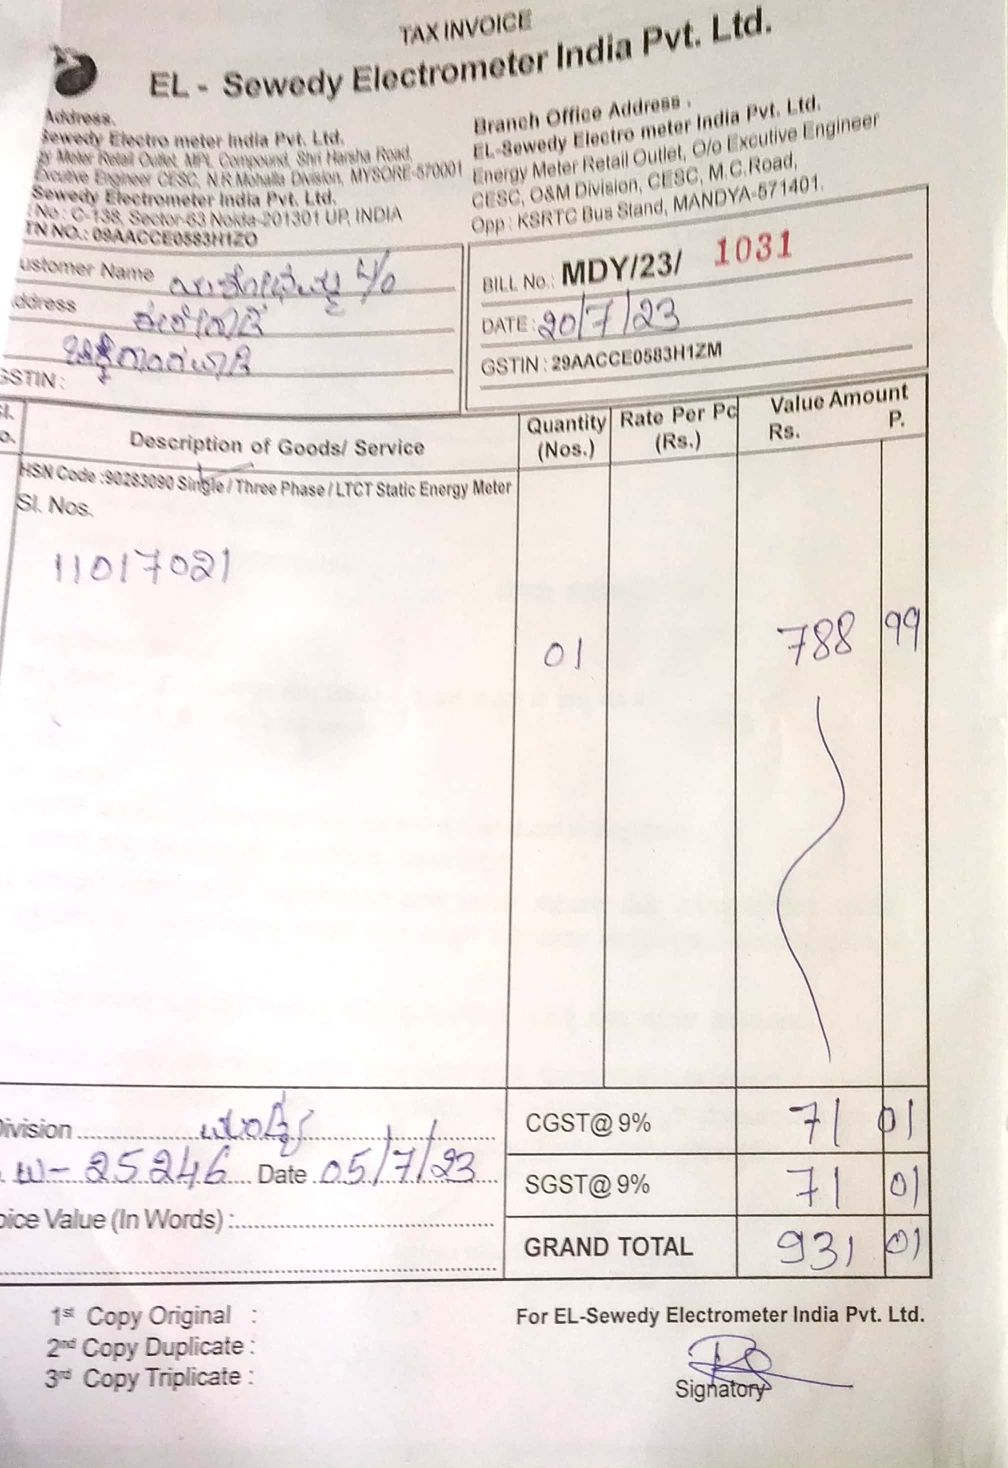 TAX INVOICE
EL - Sewedy Electrometer India Pvt. Ltd.
Address.
Sewedy Electro meter India Pvt. Ltd.
gy Meter Retail Outlet, MPL Compound, Shri Harsha Road,
Excutive Engineer CESC, N.R.Mohalla Division, MYSORE-570001
Sewedy Electrometer India Pvt. Ltd.
No : C-138, Sector-63 Noida-201301 UP, INDIA
TN NO.: 09AACCE0583H1ZO
Branch Office Address .
EL-Sewedy Electro meter India Pvt. Ltd.
Energy Meter Retail Outlet, O/o Excutive Engineer
CESC, O&M Division, CESC, M.C.Road,
Opp : KSRTC Bus Stand, MANDYA-571401.
ustomer Name
ddress
GSTIN :
BILL No.: MDY/23/ 1031
DATE : 20/7/23
GSTIN : 29AACCE0583H1ZM
Sl.
o.
Description of Goods/ Service
Quantity
(Nos.)
Rate Per Pc
(Rs.)
Value Amount
Rs. P.
HSN Code :90283090 Single / Three Phase / LTCT Static Energy Meter
Sl. Nos.
11017021
01 788 99
Division
CGST@ 9% 71 01
25246 Date 05/7/23
SGST@ 9% 71 01
oice Value (In Words) :
GRAND TOTAL 931 01
1st Copy Original :
2nd Copy Duplicate :
3rd Copy Triplicate :
For EL-Sewedy Electrometer India Pvt. Ltd.
Signatory